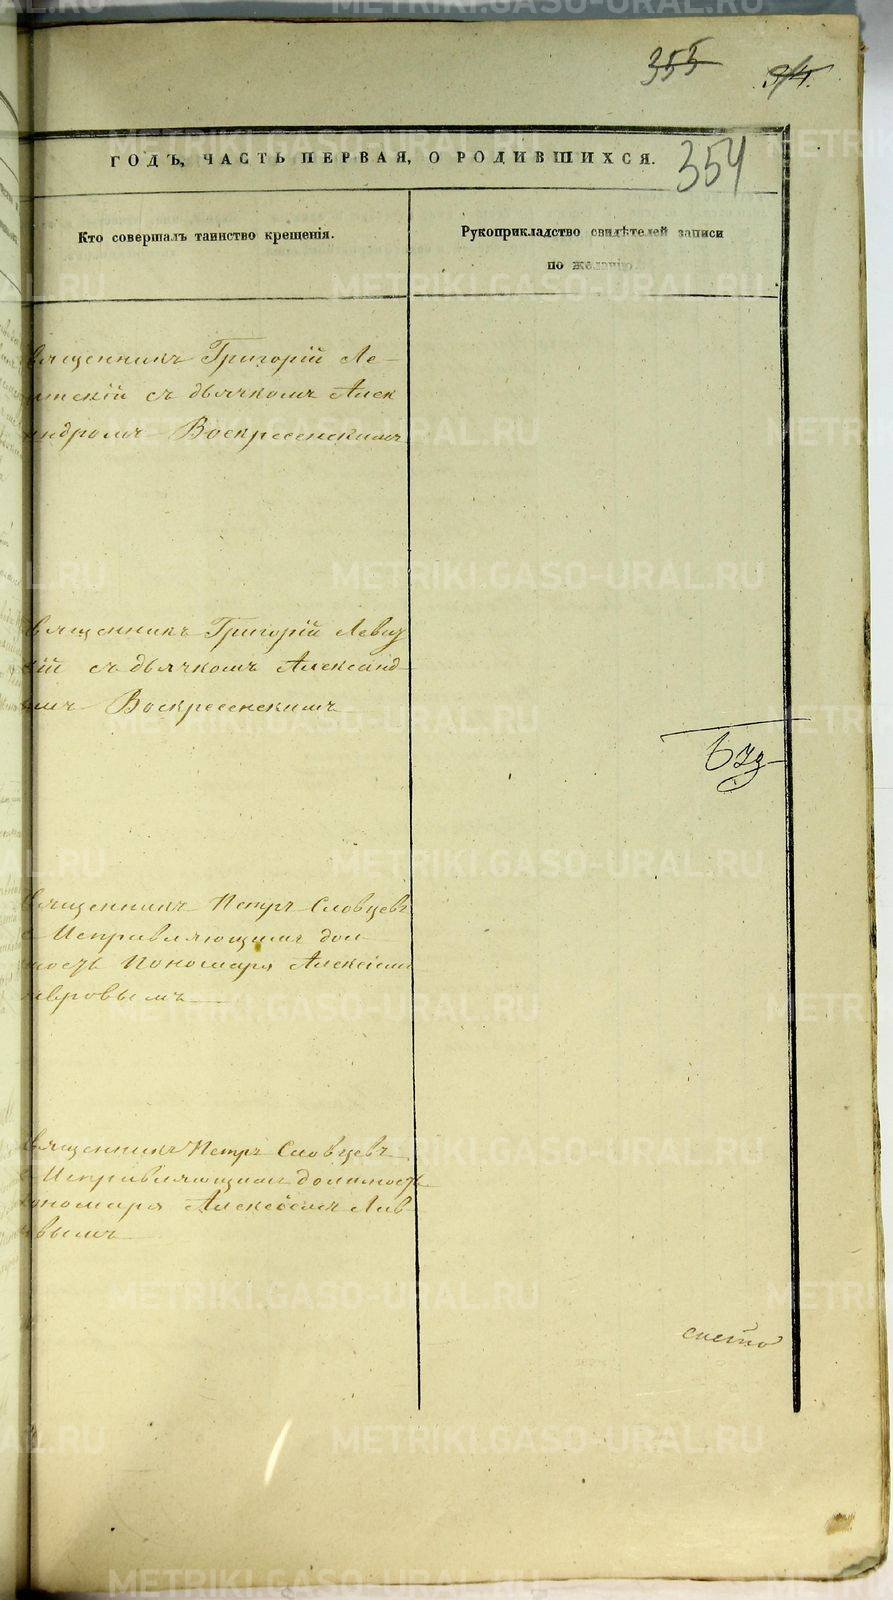 355
354
ГОДЪ, ЧАСТЬ ПЕРВАЯ, О РОДИВШИХСЯ.
Кто совершалъ таинство крещенія.
Рукоприкладство свидѣтелей записи
по желанію.
вященникъ Григорій Ле-
итскій съ дьячкомъ Алек
ндромъ Воскресенскимъ
вященникъ Григорій Левиц
кій съ дьячкомъ Александ-
омъ Воскресенскимъ
вященникъ Петръ Словцевъ
Исправляющимъ дол
ность Пономаря Алексіем
авровымъ
вященникъ Петръ Словцевъ
Исправляющим должность
ономаря Алексіемъ Лав
вымъ
METRIKI.GASO-URAL.RU